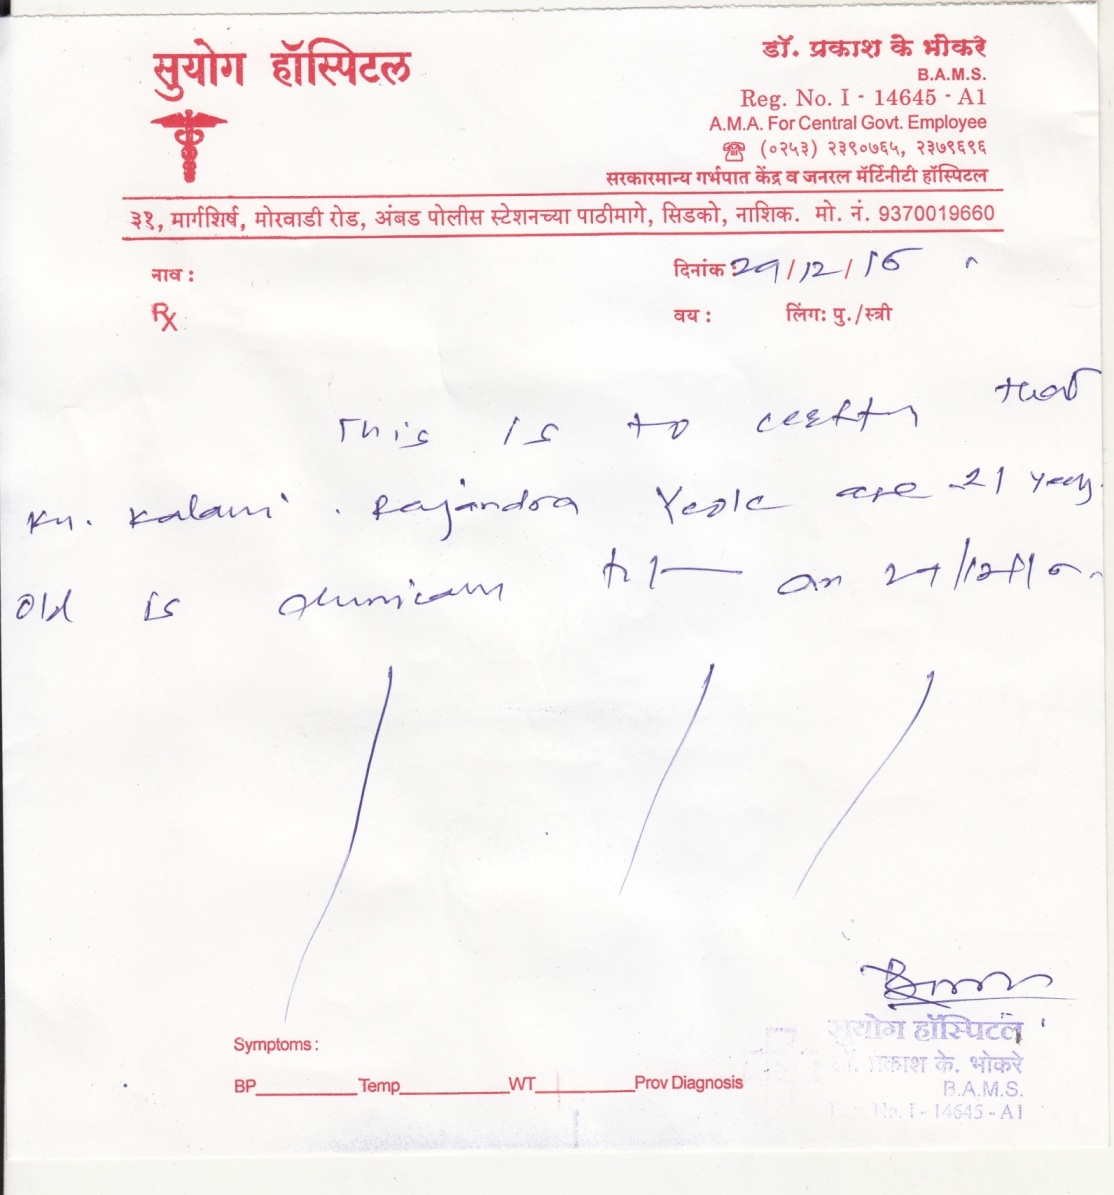 सुयोग हॉस्पिटल
डॉ. प्रकाश के भोकरे
B.A.M.S.
Reg. No. I - 14645 - A1
A.M.A. For Central Govt. Employee
☎ (०२५३) २३९०७६५, २३७९६९६
सरकारमान्य गर्भपात केंद्र व जनरल मॅर्टिनीटी हॉस्पिटल
३१, मार्गशिर्ष, मोरवाडी रोड, अंबड पोलीस स्टेशनच्या पाठीमागे, सिडको, नाशिक. मो. नं. 9370019660
नाव :
दिनांक : 29/12/16
Rx
वय : लिंग: पु./स्त्री
This is to certify that
Ku. Rajendra Yeole age 21 years
old is on
Symptoms :
BP Temp WT Prov Diagnosis
सुयोग हॉस्पिटल
डॉ. प्रकाश के. भोकरे
B.A.M.S.
Reg. No. I - 14645 - A1